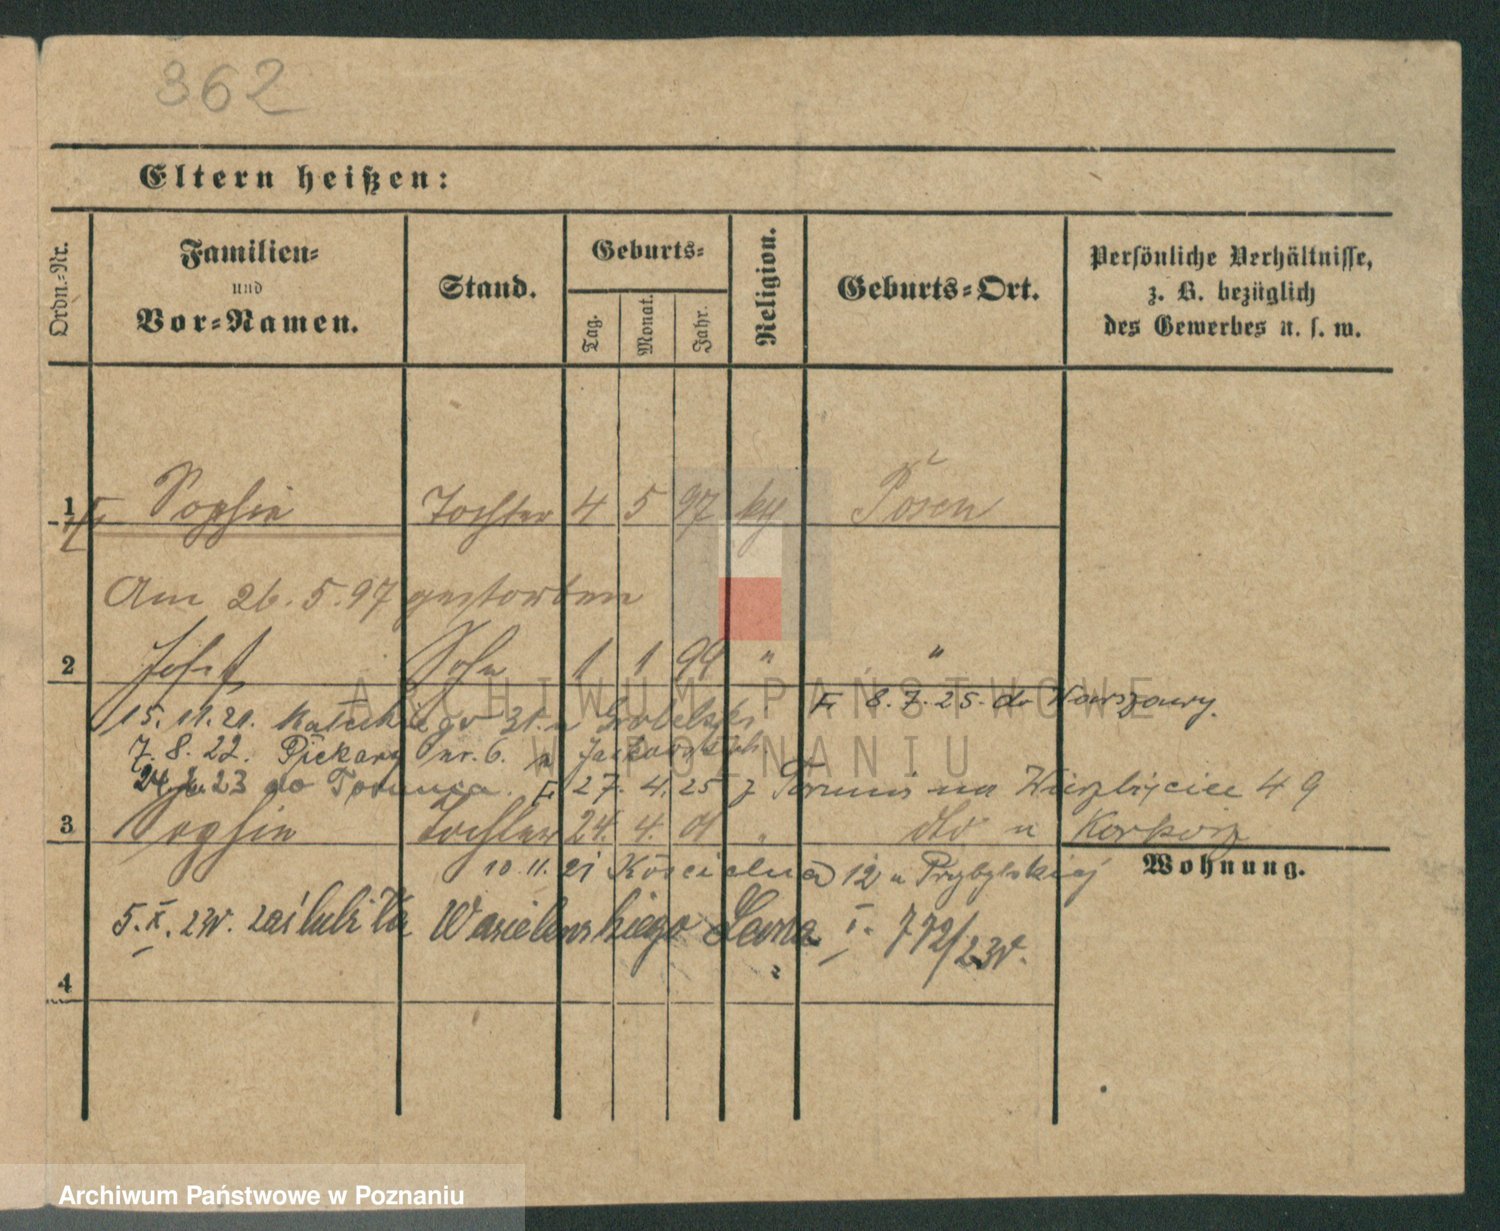 362
Eltern heißen:
Ordn.-Nr.
Familien-
und
Vor-Namen.
Stand.
Geburts-
Tag.
Monat.
Jahr.
Religion.
Geburts-Ort.
Persönliche Verhältnisse,
z. B. bezüglich
des Gewerbes u. s. w.
1 Sophie Tochter 4 5 97 Posen
Am 26.5.97 gestorben
2 Josef Sohn 1 1 99 " "
8.7.25. do Warszawy.
15.11.21. 31. u
7.8.22. Piekary nr. 6.
23 do Torunia. 27.4.25 z Torunia na 49
3 Sophie Tochter 24. 4. 01 " dto u
Wohnung.
10.11.21 Kościelna 12 u Przybylskiej
5.X.23r. zaślubiła Wasielewskiego Leona I. 772/23r.
4
ARCHIWUM PAŃSTWOWE
W POZNANIU
Archiwum Państwowe w Poznaniu